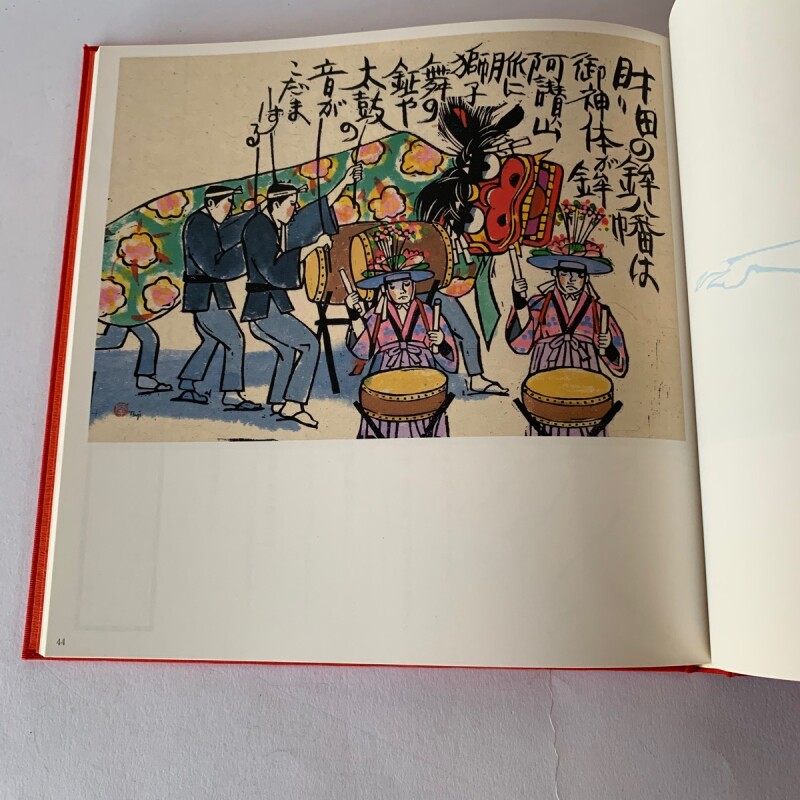 財田の鉾八幡は
御神体が鉾
阿讃山
脈に
獅子
舞の
鉦や
太鼓の
音が
こだま
する
44